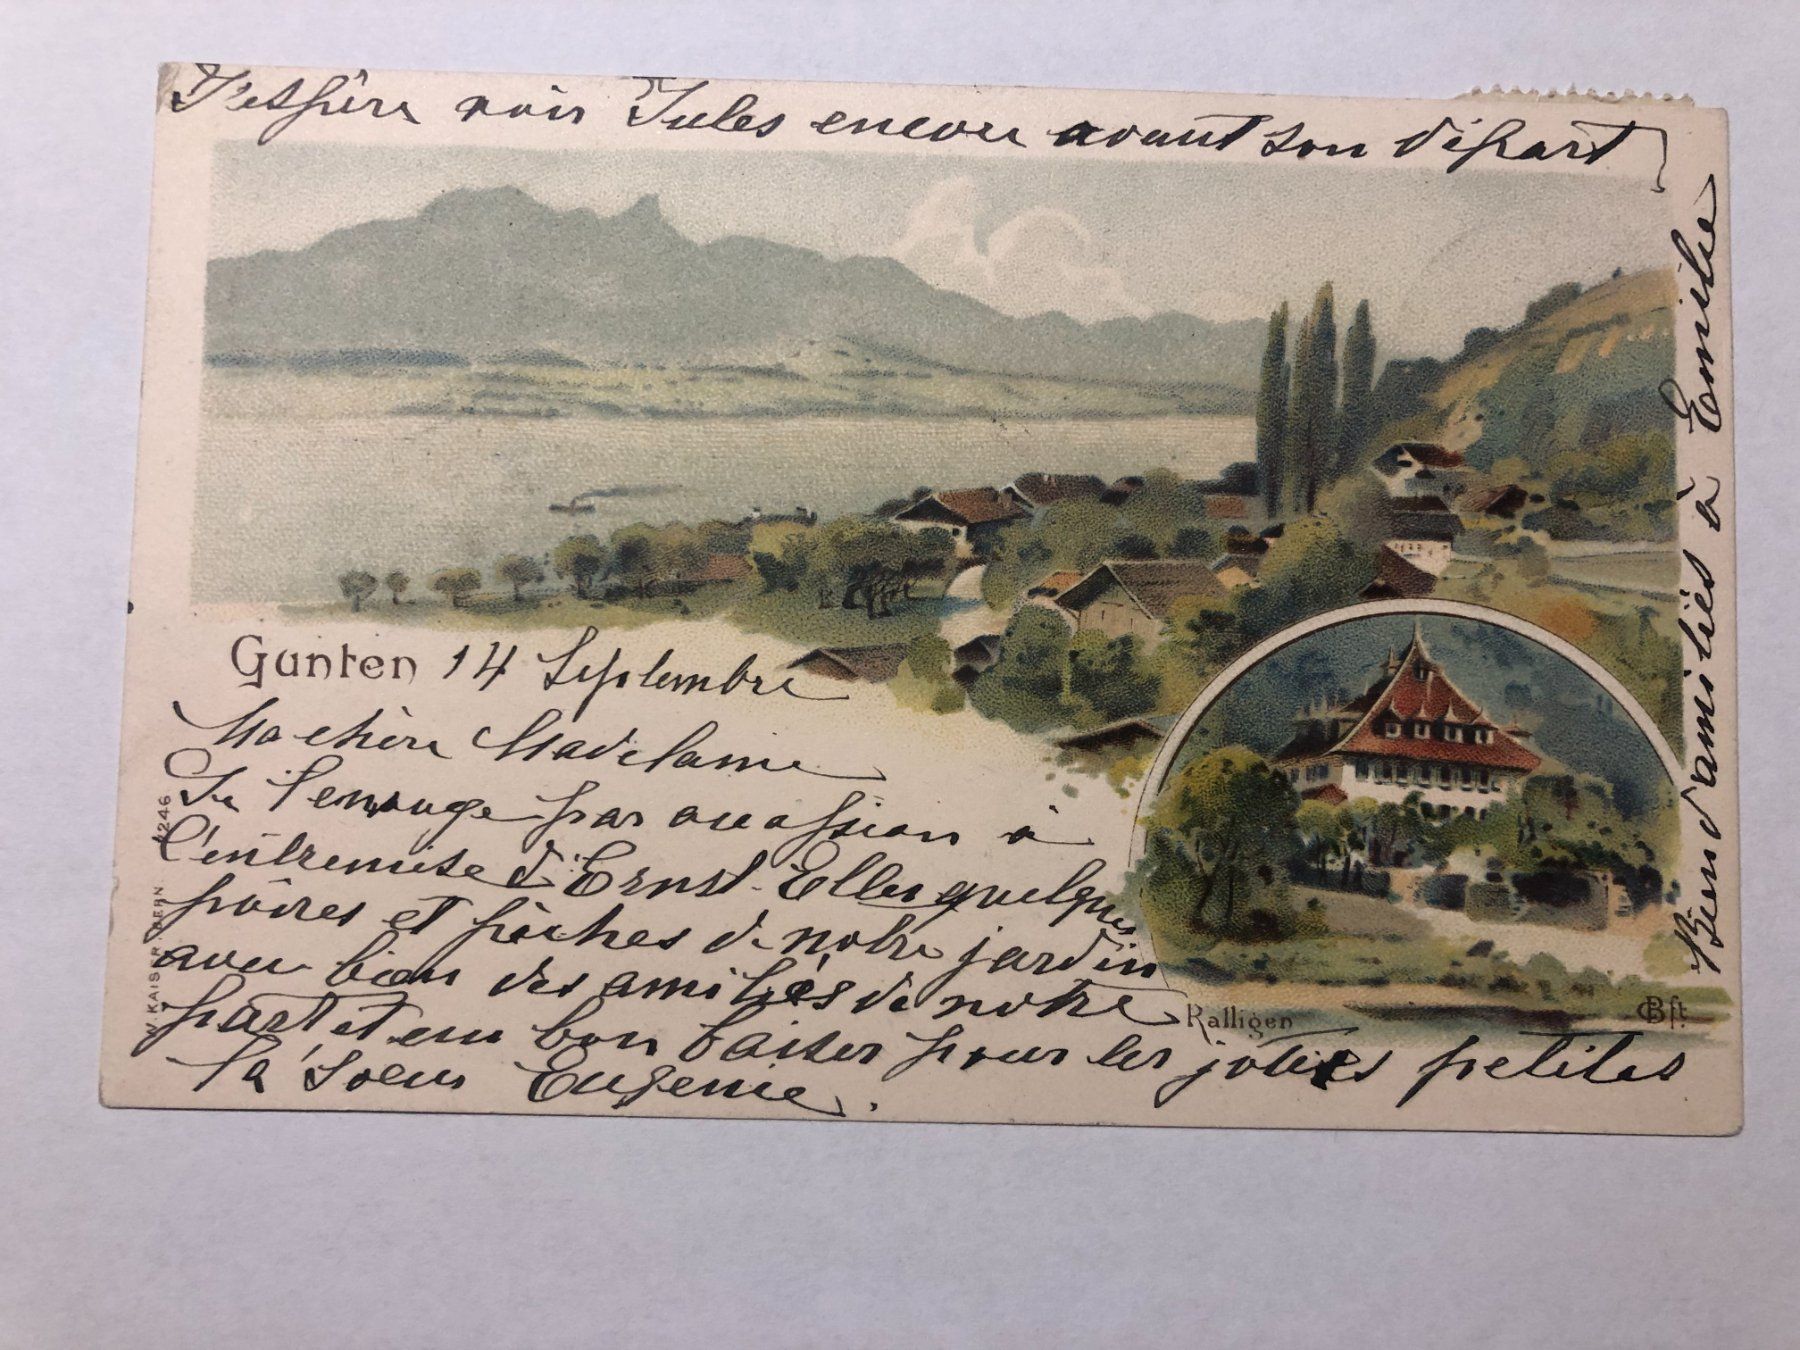 J'espère voir Jules encore avant son départ
Bien d'amitiés à Emilie
Gunten 14 Septembre
Ma chère Madelaine
Je t'envoye par occassion à
l'entremise d'Ernst Eller quelques
poires et pêches de notre jardin
avec bien des amitiés de notre
part et un bon baiser pour les jolies petites
Ta soeur Eugenie.
Ralligen
CBft.
W. KAISER, BERN. 4246